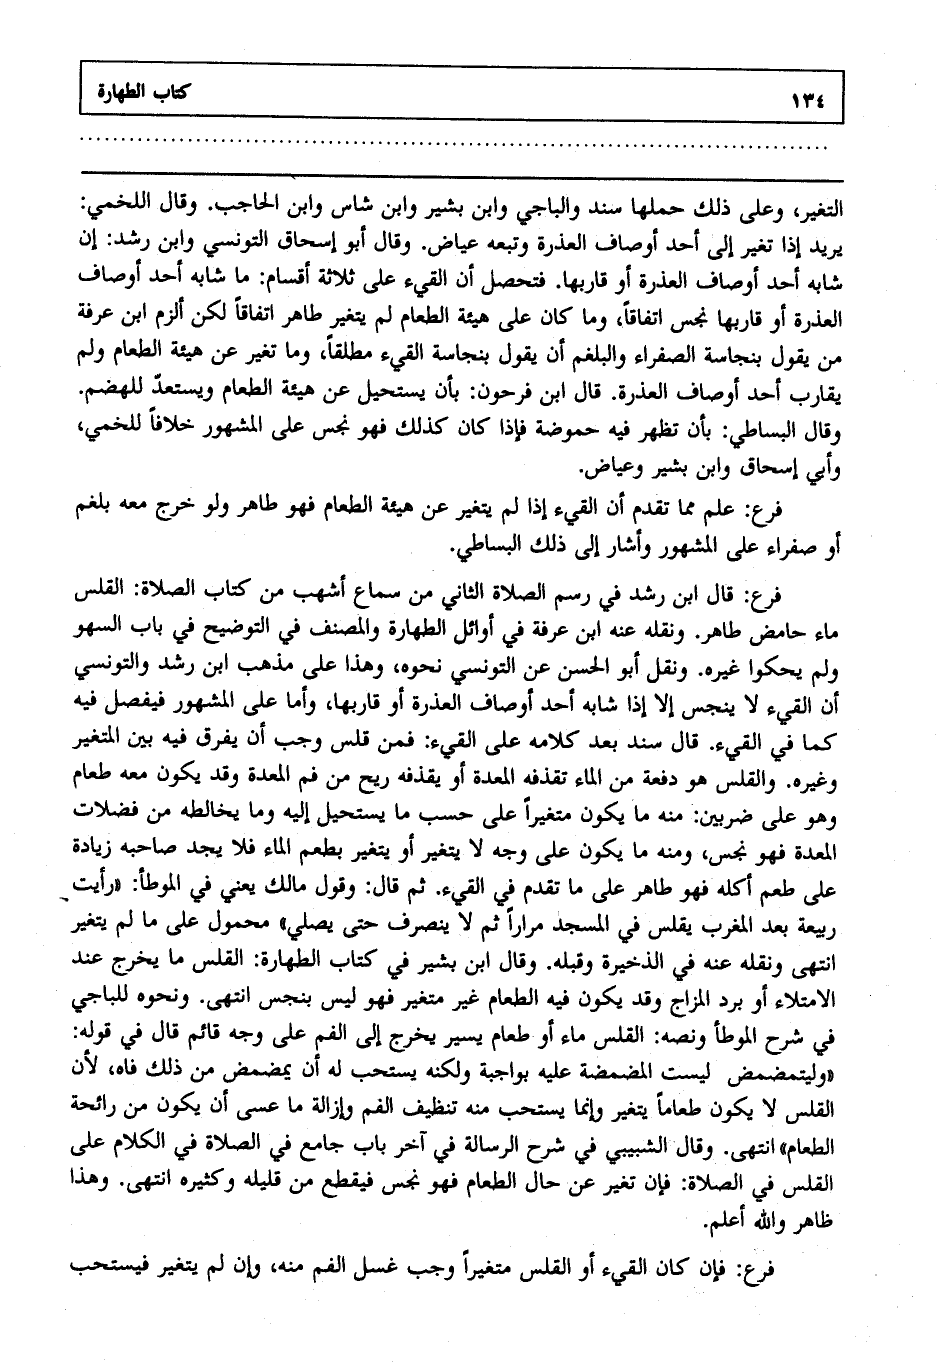 ١٣٤ كتاب الطهارة
التغير، وعلى ذلك حملها سند والباجي وابن بشير وابن شاس وابن الحاجب. وقال اللخمي:
يريد إذا تغير إلى أحد أوصاف العذرة وتبعه عياض. وقال أبو إسحاق التونسي وابن رشد: إن
شابه أحد أوصاف العذرة أو قاربها. فتحصل أن القيء على ثلاثة أقسام: ما شابه أحد أوصاف
العذرة أو قاربها نجس اتفاقاً، وما كان على هيئة الطعام لم يتغير طاهر اتفاقاً لكن ألزم ابن عرفة
من يقول بنجاسة الصفراء والبلغم أن يقول بنجاسة القيء مطلقاً، وما تغير عن هيئة الطعام ولم
يقارب أحد أوصاف العذرة. قال ابن فرحون: بأن يستحيل عن هيئة الطعام ويستعدّ للهضم.
وقال البساطي: بأن تظهر فيه حموضة فإذا كان كذلك فهو نجس على المشهور خلافاً للخمي،
وأبي إسحاق وابن بشير وعياض.
فرع: علم مما تقدم أن القيء إذا لم يتغير عن هيئة الطعام فهو طاهر ولو خرج معه بلغم
أو صفراء على المشهور وأشار إلى ذلك البساطي.
فرع: قال ابن رشد في رسم الصلاة الثاني من سماع أشهب من كتاب الصلاة: القلس
ماء حامض طاهر. ونقله عنه ابن عرفة في أوائل الطهارة والمصنف في التوضيح في باب السهو
ولم يحكوا غيره. ونقل أبو الحسن عن التونسي نحوه، وهذا على مذهب ابن رشد والتونسي
أن القيء لا ينجس إلا إذا شابه أحد أوصاف العذرة أو قاربها، وأما على المشهور فيفصل فيه
كما في القيء. قال سند بعد كلامه على القيء: فمن قلس وجب أن يفرق فيه بين المتغير
وغيره. والقلس هو دفعة من الماء تقذفه المعدة أو يقذفه ريح من فم المعدة وقد يكون معه طعام
وهو على ضربين: منه ما يكون متغيراً على حسب ما يستحيل إليه وما يخالطه من فضلات
المعدة فهو نجس، ومنه ما يكون على وجه لا يتغير أو يتغير بطعم الماء فلا يجد صاحبه زيادة
على طعم أكله فهو طاهر على ما تقدم في القيء. ثم قال: وقول مالك يعني في الموطأ: «رأيت
ربيعة بعد المغرب يقلس في المسجد مراراً ثم لا ينصرف حتى يصلي» محمول على ما لم يتغير
انتهى ونقله عنه في الذخيرة وقبله. وقال ابن بشير في كتاب الطهارة: القلس ما يخرج عند
الامتلاء أو برد المزاج وقد يكون فيه الطعام غير متغير فهو ليس بنجس انتهى. ونحوه للباجي
في شرح الموطأ ونصه: القلس ماء أو طعام يسير يخرج إلى الفم على وجه قائم قال في قوله:
«وليتمضمض ليست المضمضة عليه بواجبة ولكنه يستحب له أن يمضمض من ذلك فاه، لأن
القلس لا يكون طعاماً يتغير وإنما يستحب منه تنظيف الفم وإزالة ما عسى أن يكون من رائحة
الطعام» انتهى. وقال الشبيبي في شرح الرسالة في آخر باب جامع في الصلاة في الكلام على
القلس في الصلاة: فإن تغير عن حال الطعام فهو نجس فيقطع من قليله وكثيره انتهى. وهذا
ظاهر والله أعلم.
فرع: فإن كان القيء أو القلس متغيراً وجب غسل الفم منه، وإن لم يتغير فيستحب